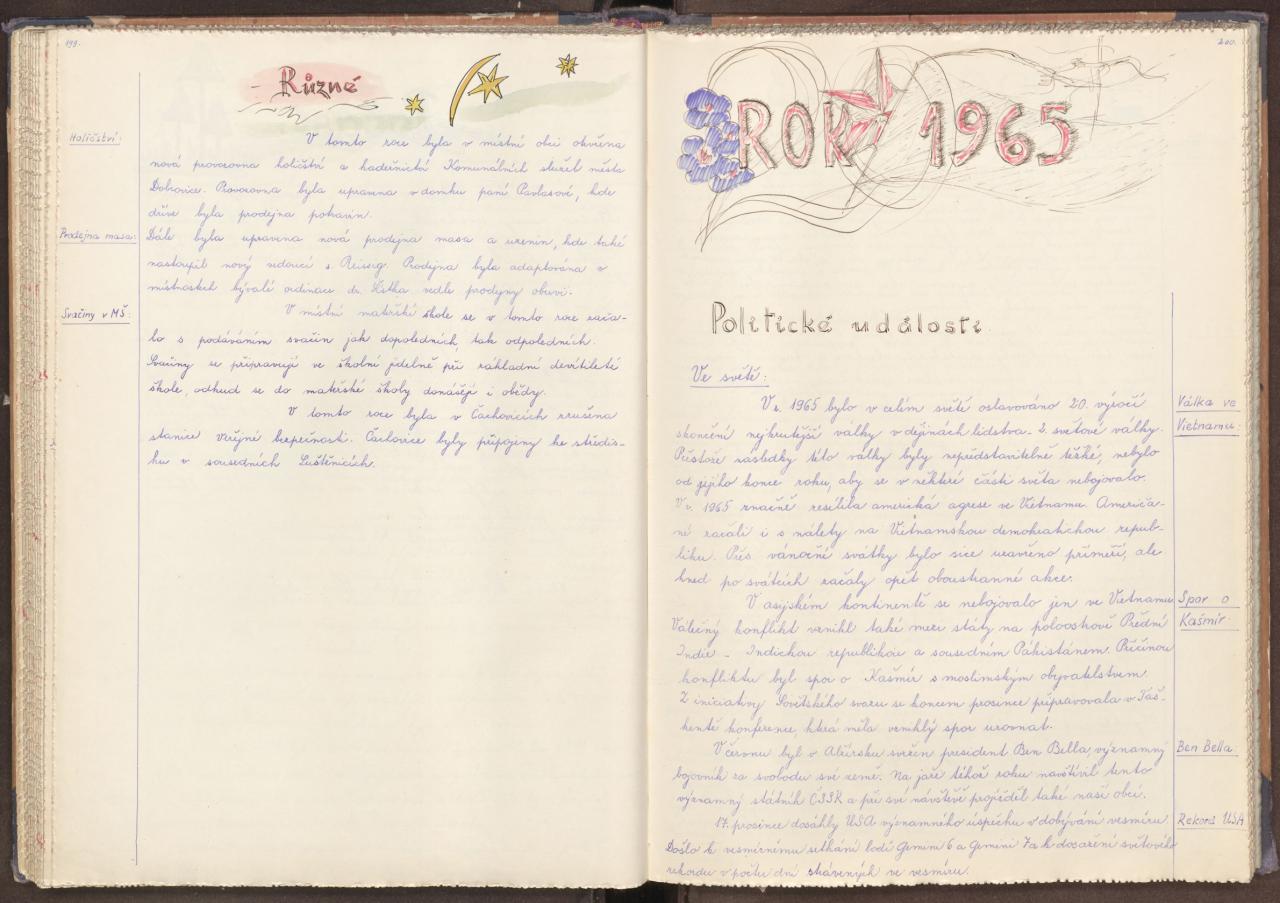 199.
Různé
Holičství:
V tomto roce byla v místní obci otevřena
nová provozovna holičství a kadeřnictví Komunálních služeb města
Dobrovice. Provozovna byla upravena v domku paní Pavlasové, kde
dříve byla prodejna potravin.
Prodejna masa:
Dále byla upravena nová prodejna masa a uzenin, kde také
nastoupil nový vedoucí s. Reiserg. Prodejna byla adaptována v
místnostech bývalé ordinace dr. Litka vedle prodejny obuvi.
Svačiny v MŠ:
V místní mateřské škole se v tomto roce zača-
lo s podáváním svačin jak dopoledních, tak odpoledních.
Svačiny se připravují ve školní jídelně při základní devítileté
škole, odkud se do mateřské školy donášejí i obědy.
V tomto roce byla v Čachovicích zrušena
stanice Veřejné bezpečnosti. Čachovice byly připojeny ke středis-
ku v sousedních Luštěnicích.
200.
ROK 1965
Politické události
Ve světě:
Válka ve
Vietnamu:
V r. 1965 bylo v celém světě oslavováno 20. výročí
skončení nejkrutější války v dějinách lidstva - 2. světové války.
Přestože následky této války byly nepředstavitelně těžké, nebylo
od jejího konce roku, aby se v některé části světa nebojovalo.
V r. 1965 značně zesílila americká agrese ve Vietnamu. Američa-
né začali i s nálety na Vietnamskou demokratickou repub-
liku. Přes vánoční svátky bylo sice uzavřeno příměří, ale
hned po svátcích začaly opět oboustranné akce.
Spor o
Kašmír:
V asijském kontinentě se nebojovalo jen ve Vietnamu
Válečný konflikt vznikl také mezi státy na poloostrově Přední
Indie - Indickou republikou a sousedním Pákistánem. Příčinou
konfliktu byl spor o Kašmír s moslimským obyvatelstvem.
Z iniciativy Sovětského svazu se koncem prosince připravovala v Taš-
kentě konference, která měla vzniklý spor urovnat.
Ben Bella:
V červnu byl v Alžírsku svržen president Ben Bella, významný
bojovník za svobodu své země. Na jaře téhož roku navštívil tento
významný státník ČSSR a při své návštěvě projížděl také naší obcí.
Rekord USA
17. prosince dosáhly USA významného úspěchu v dobývání vesmíru.
Došlo k vesmírnému setkání lodí Gemini 6 a Gemini 7 a k docażení světového
rekordu v počtu dní strávených ve vesmíru.